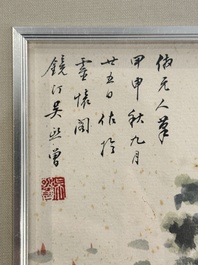 仿元人筆
甲申秋九月
廿五日作於
靈懷閣
鏡汀吳熙曾